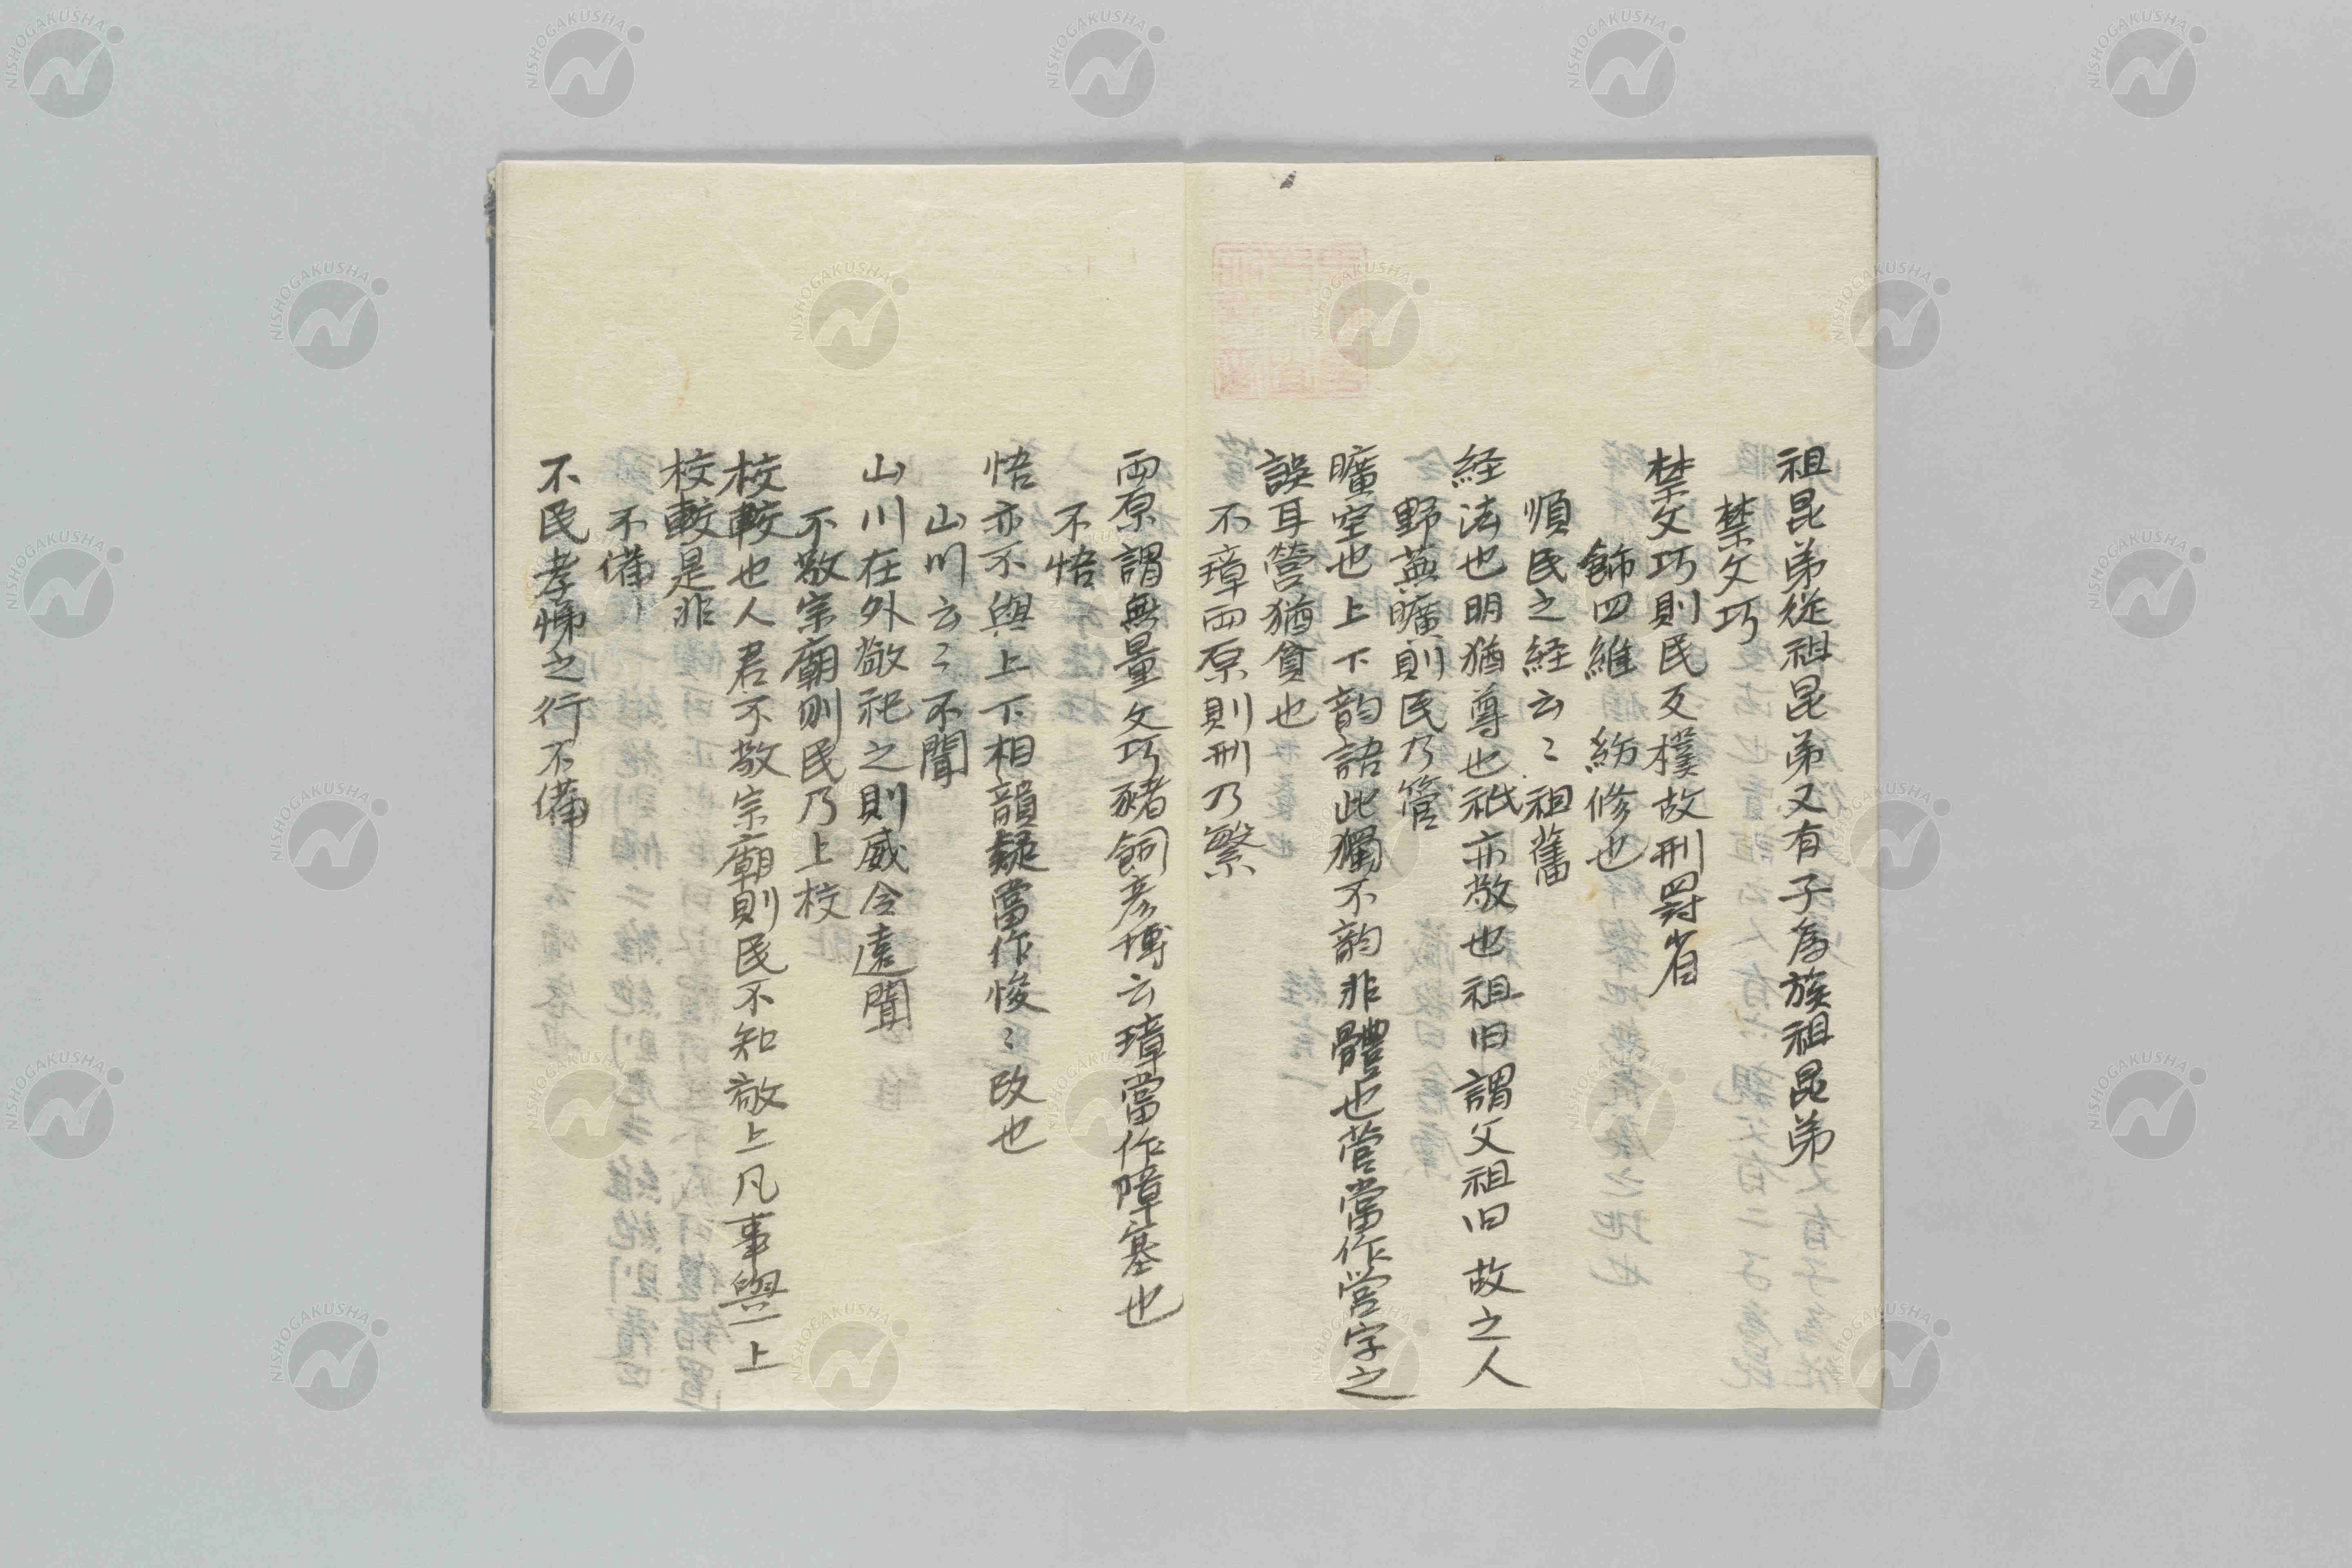 祖昆弟從祖昆弟又有子為族祖昆弟
禁文巧
禁文巧則民反樸故刑罰省
飾四維　紡修也
順民之経云〻祖舊
経法也明猶尊也祇亦敬也祖旧謂父祖旧故之人
野蕪曠則民乃管
曠空也上下韵語此獨不韵非體也菅當作営字之
誤耳營猶貪也
不璋両原則刑乃繁
両原謂無量文巧豬飼彦博云璋當作障塞也
不悟
悟亦不與上下相韻疑當作悛〻改也
山川云〻不聞
山川在外敬祀之則威令遠聞
不敬宗廟則民乃上校
校較也人君不敬宗廟則民不知敬上凡事與上
校較是非
不備
不民孝悌之行不備
NISHOGAKUSHA